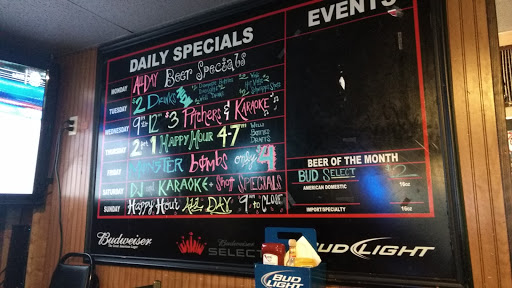 DAILY SPECIALS
EVENTS
MONDAY All DAY Beer Specials
TUESDAY $2 Drinks
WEDNESDAY 9 to 12 $3 Pitchers & KARAOKE
THURSDAY 2 for 1 HAPPY HOUR 4-7 Wells Bottles DRAFTS
FRIDAY MONSTER bombs only $4
SATURDAY DJ and KARAOKE + Shot SPECIALS
SUNDAY Happy Hour All DAY 9 to CLOSE
BEER OF THE MONTH
BUD SELECT 2
AMERICAN DOMESTIC 16oz
IMPORT/SPECIALTY 16oz
Budweiser
Budweiser
SELECT
BUD LIGHT
BUD LIGHT